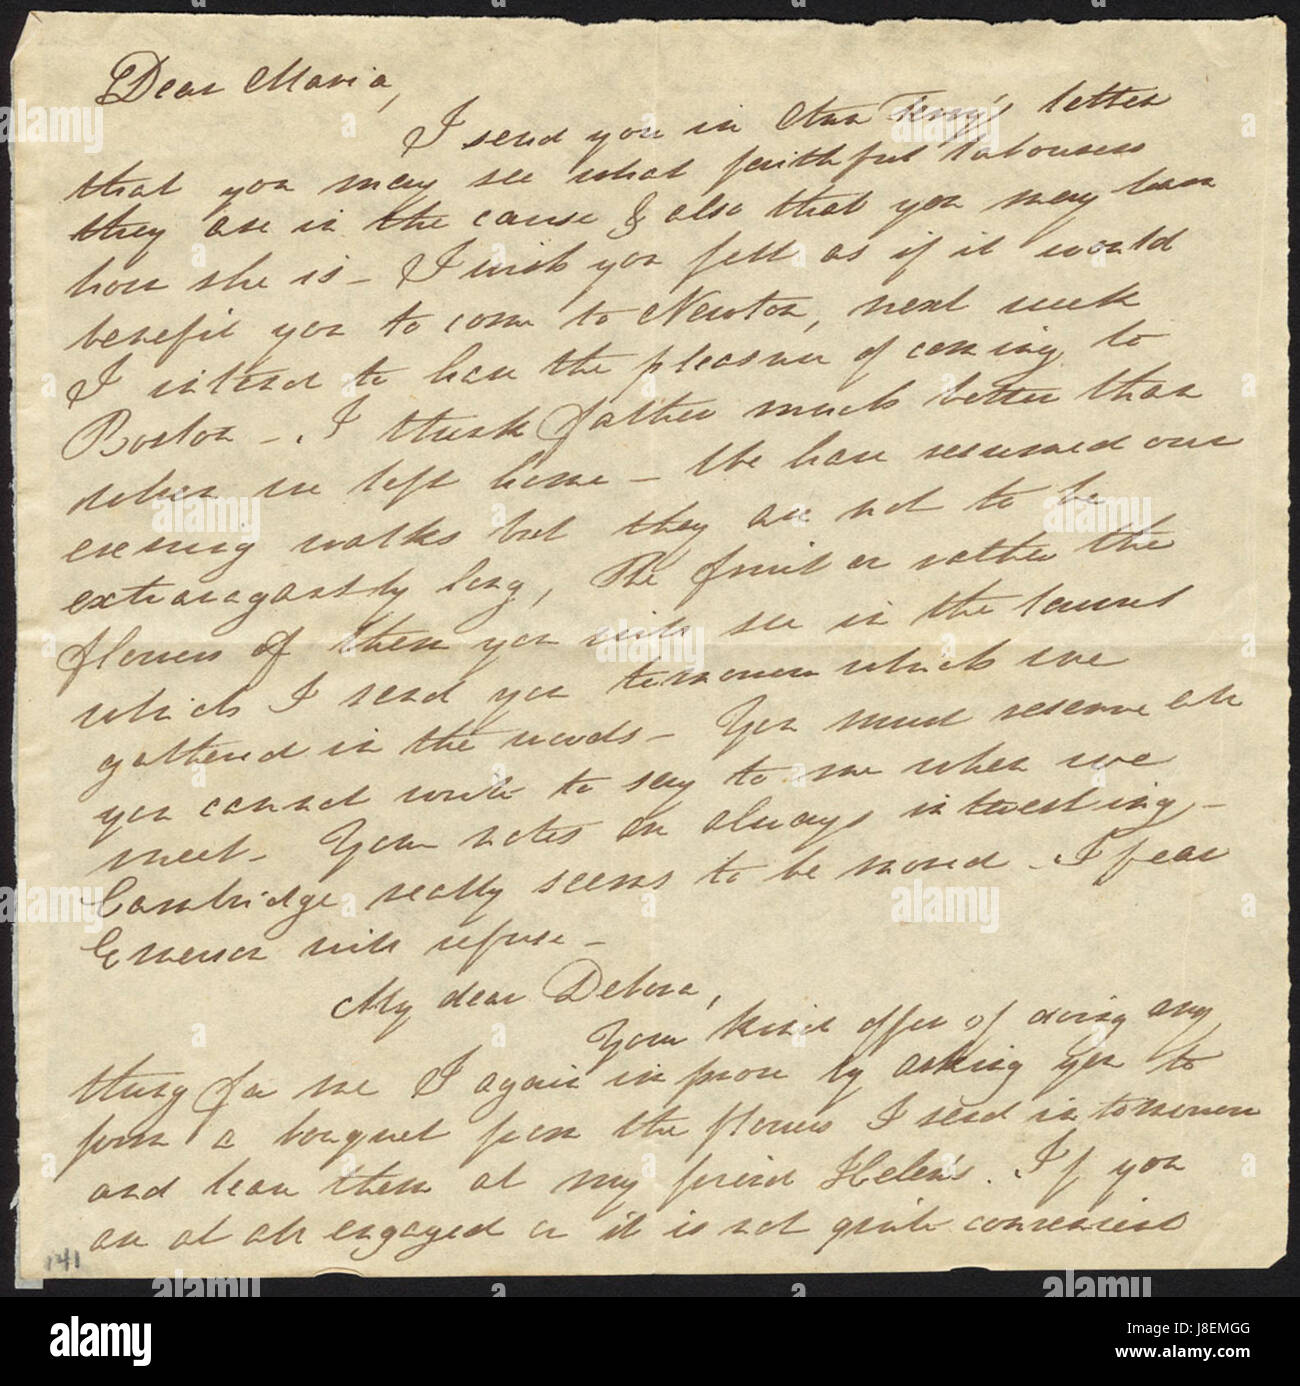 Dear Maria,
I send you in Ann Terry's letter
that you may see what faithful labourers
they are in the cause & also that you may learn
how she is - I wish you felt as if it would
benefit you to come to Newton, next week
I intend to have the pleasure of coming to
Boston - I think father much better than
when we left home - We have resumed our
evening walks but they are not to be
extravagantly long, The fruit or rather the
flowers of them you will see in the laurel
which I send you tomorrow which we
gathered in the woods - You must reserve all
you cannot write to say to me when we
meet - Your notes are always interesting -
Cambridge really seems to be moved - I fear
Emerson will refuse -
My dear Debora,
Your kind offer of doing any
thing for me I again improve by asking you to
form a bouquet from the flowers I send in tomorrow
and leave them at my friend Helen's. If you
are at all engaged or it is not quite convenient
141
alamy
www.alamy.com
Image ID: J8EMGG